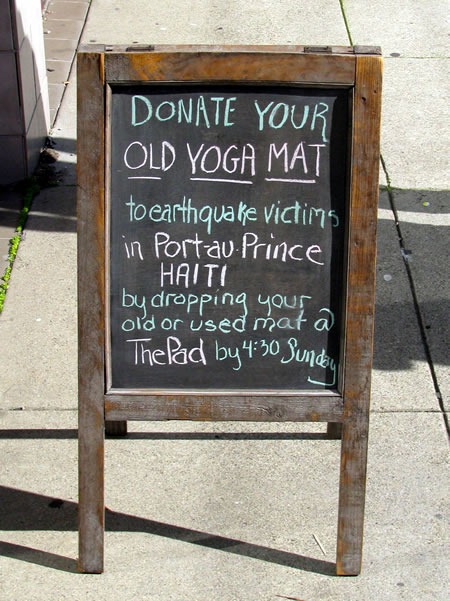 DONATE YOUR
OLD YOGA MAT
to earthquake victims
in Port-au-Prince
HAITI
by dropping your
old or used mat @
The Pad by 4:30 Sunday